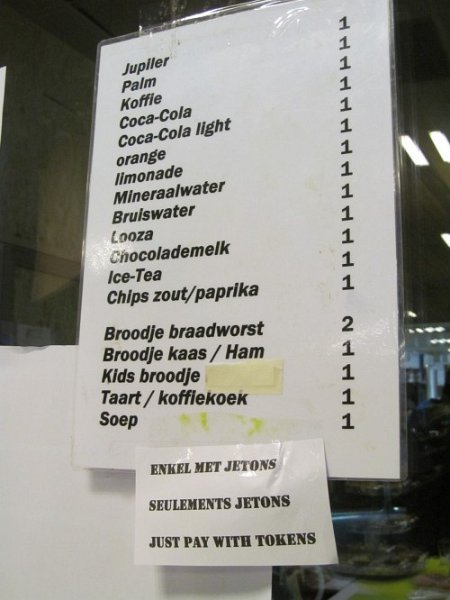 Jupiler 1
Palm 1
Koffie 1
Coca-Cola 1
Coca-Cola light 1
orange 1
limonade 1
Mineraalwater 1
Bruiswater 1
Looza 1
Chocolademelk 1
Ice-Tea 1
Chips zout/paprika 1
Broodje braadworst 2
Broodje kaas / Ham 1
Kids broodje 1
Taart / koffiekoek 1
Soep 1
ENKEL MET JETONS
SEULEMENTS JETONS
JUST PAY WITH TOKENS